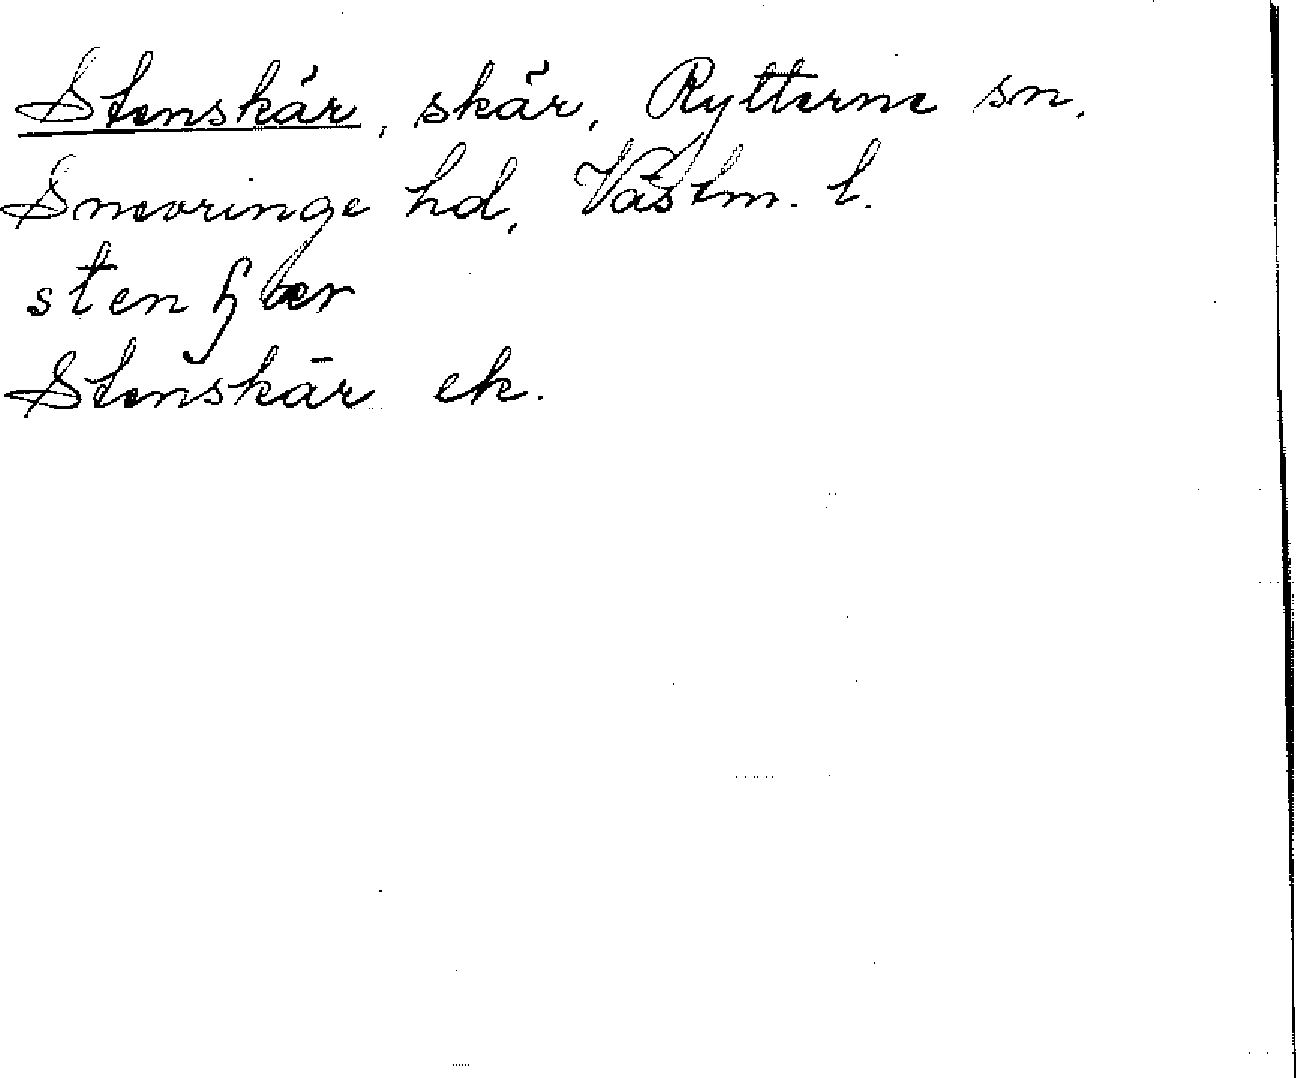 Stenskär, skär, Rytterne sn.
Snevringe hd, Västm. l.
stenɧær
Stenskär ek.